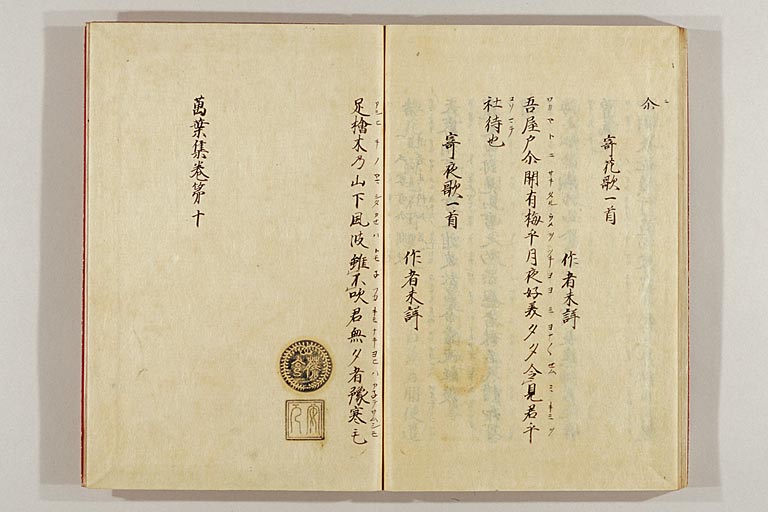 尒
寄花歌一首
作者未詳
吾屋戸尒開有梅乎月夜好美夕夕令見君乎
社待也
寄夜歌一首
作者未詳
足檜木乃山下風波雖不吹君無夕者豫寒毛
萬葉集卷第十